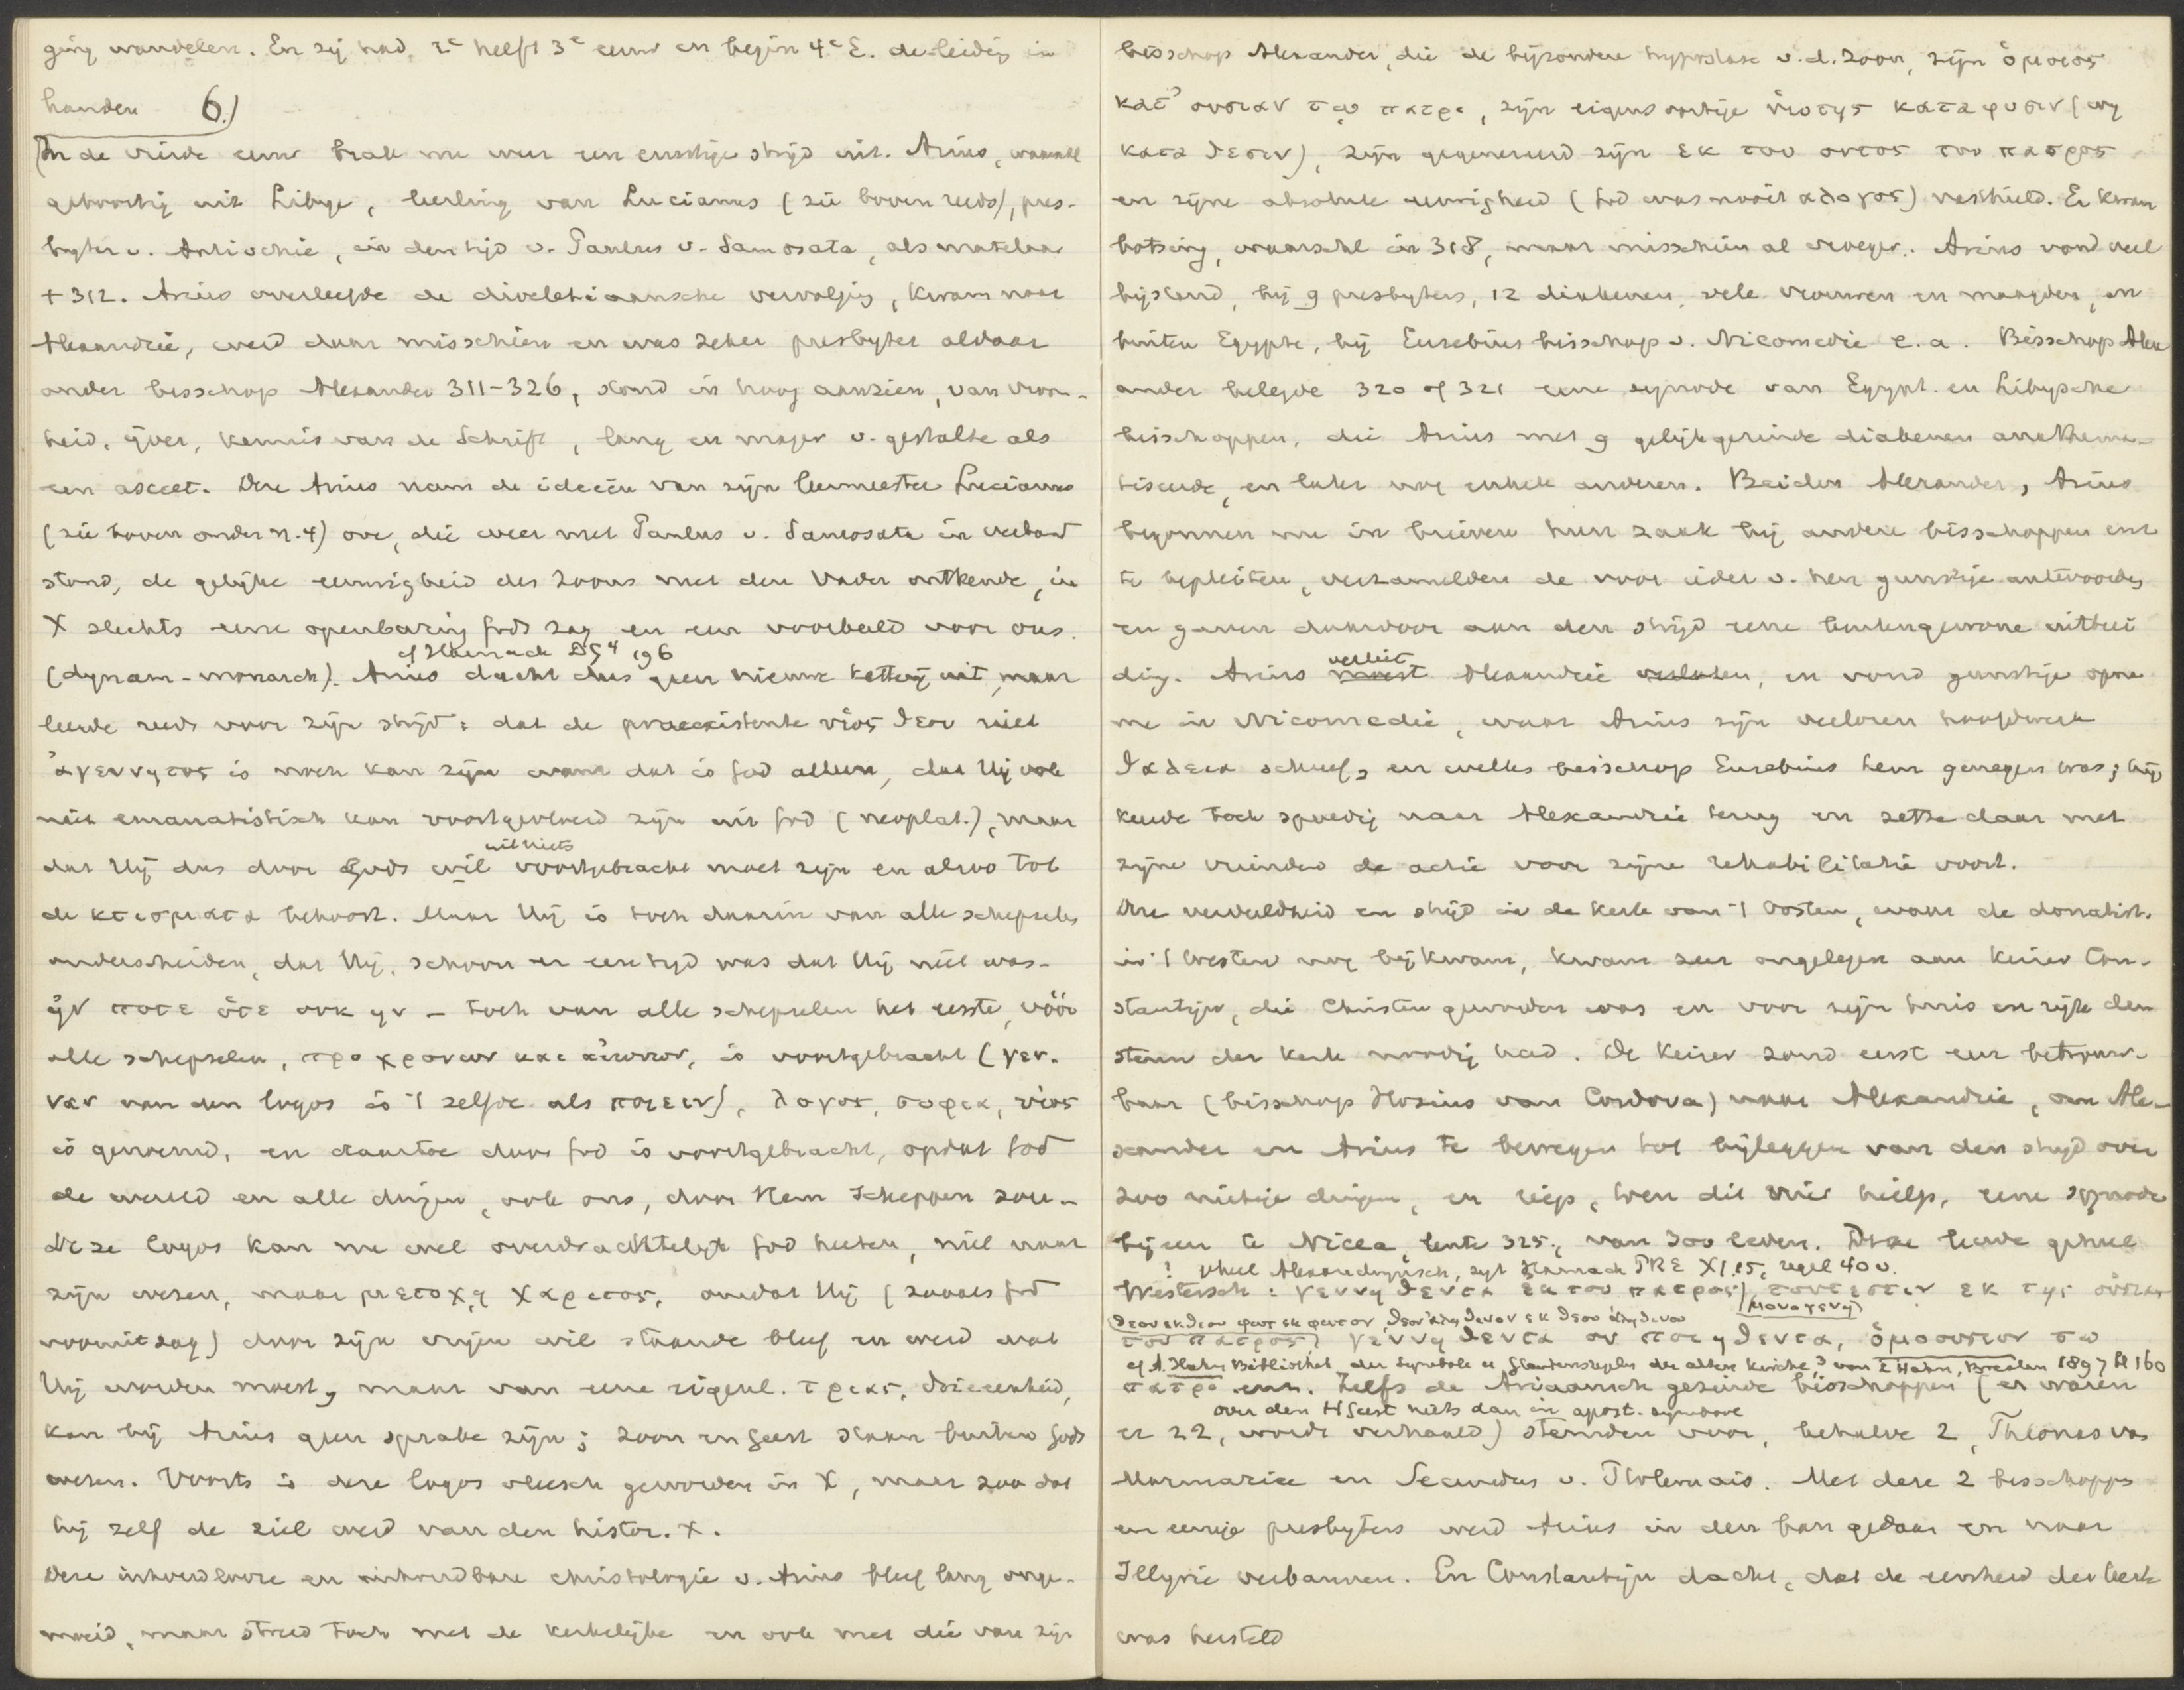 ging wandelen. En zij had, 2e helft 3e eeuw en begin 4e E. de leiding in
handen 6.)
In de vierde eeuw brak nu weer een ernstige strijd uit. Arius, waarschl
geboortig uit Libye, leerling van Lucianus (zie boven reeds), pres-
byter v. Antiochië, in den tijd v. Paulus v. Samosata, als martelaar
+ 312. Arius overleefde de diocletiaansche vervolging, kwam naar
Alexandrië, werd daar misschien en was zeker presbyter aldaar
onder bisschop Alexander 311-326, stond in hoog aanzien, van vroom-
heid, ijver, kennis van de Schrift, lang en mager v. gestalte als
een asceet. Deze Arius nam de ideeën van zijn leermeester Lucianus
(zie boven onder n. 4) over, die weer met Paulus v. Samosata in verband
stond, de gelijke eeuwigheid des Zoons met den Vader ontkende, in
X slechts eene openbaring Gods zag en een voorbeeld voor ons.
cf Harnack DG⁴ 196
(dynam-monarch). Arius dacht dus geen nieuwe ketterij uit, maar
leerde reeds voor zijn strijd: dat de praeexistente υἱος θεου niet
ἀγεννητος is noch kan zijn want dat is God alleen, dat Hij ook
niet emanatistisch kan voortgevloeid zijn uit God (neoplat.), maar
uit niets
dat Hij dus door Gods wil voortgebracht moet zijn en alzoo tot
de κτισματα behoort. Maar Hij is toch daarin van alle schepselen
onderscheiden, dat Hij, schoon er een tijd was dat Hij niet was-
ἠν ποτε ὁτε ουκ ην - toch van alle schepselen het eerste, vóór
alle schepselen, προ χρονων και αἰωνων, is voortgebracht (γεν-
ναν van den logos is 't zelfde als ποιειν), λογος, σοφια, υἱος
is genoemd, en daartoe door God is voortgebracht, opdat God
de wereld en alle dingen, ook ons, door Hem scheppen zou-
Deze logos kan nu wel overdrachtelijk God heeten, niet naar
zijn wezen, maar μετοχῃ χαριτος, omdat Hij (zooals God
vooruitzag) door zijn vrijen wil staande bleef en werd wat
Hij worden moest, maar van eene eigenl. τριας, drieeenheid,
kan bij Arius geen sprake zijn; Zoon en Geest staan buiten Gods
wezen. Voorts is deze logos vleesch geworden in X, maar zoo dat
hij zelf de ziel werd van den histor. X.
Deze inhoudlooze en onhoudbare christologie v. Arius bleef lang onge-
moeid, maar streed toch met de kerkelijke en ook met die van zijn
bisschop Alexander, die de bijzondere hypostase v. d. Zoon, zijn ὁμοιος
κατ' ουσιαν τῳ πατρι, zijn eigensoortige υἱοτης κατα φυσιν (ουχ
κατα θεσιν), zijn gegenereerd zijn εκ του οντος του πατρος
en zijne absolute eeuwigheid (God was nooit αλογος) vasthield. Er kwam
botsing, waarschl in 318, maar misschien al vroeger. Arius vond veel
bijstand, bij 9 presbyters, 12 diakenen, vele vrouwen en maagden, en
buiten Egypte, bij Eusebius bisschop v. Nicomedie e.a. Bisschop Alex
ander belegde 320 of 321 eene synode van Egypt. en Libysche
bisschoppen, die Arius met 9 gelijkgezinde diakenen anathema-
tiseerde, en later nog enkele anderen. Beiden Alexander, Arius
begonnen nu in brieven hun zaak bij andere bisschoppen enz
te bepleiten, verzamelden de voor ieder v. hen gunstige antwoorden
en gaven daardoor aan den strijd eene buitengewone uitbrei
verliet
ding. Arius moest Alexandrië verlaten, en vond gunstige opna
me in Nicomedië, waar Arius zijn verloren hoofdwerk
Θαλεια schreef, en welks bisschop Eusebius hem genegen was; hij
keerde toch spoedig naar Alexandrië terug en zette daar met
zijne vrienden de actie voor zijne rehabilitatie voort.
Deze verdeeldheid en strijd in de kerk van 't Oosten, waar de donatist.
in 't Westen nog bijkwam, kwam zeer ongelegen aan keizer Con-
stantijn, die Christen geworden was en voor zijn huis en rijk den
steun der kerk noodig had. De keizer zond eerst een betrouw-
baar (bisschop Hosius van Cordova) naar Alexandrië, om Ale-
xander en Arius te bewegen tot bijleggen van den strijd over
zoo nietige dingen, en riep, toen dit niet hielp, eene synode
bijeen te Nicea, lente 325, van 300 leden. Deze leerde geheel
! geheel Alexandrijnisch, zegt Harnack PRE XI.15, regel 40 v.
Westersch: γεννηθεντα εκ του πατρος, τουτεστιν εκ της οὐσιας
θεον εκ θεου φως εκ φωτος, θεον αληθινον εκ θεου αληθινου μονογενη
του πατρος, γεννηθεντα ου ποιηθεντα, ὁμοουσιον τῳ
cf A. Hahn Bibliothek der Symbole u Glaubensregeln der alten Kirche, 3 von L Hahn, Breslau 1897 bl 160
πατρι enz. Zelfs de Ariaansch gezinde bisschoppen (er waren
over den H Geest niets dan in apost. symbool
er 22, wordt verhaald) stemden voor, behalve 2, Theonas van
Marmarica en Secundus v. Ptolemais. Met deze 2 bisschoppen
en eenige presbyters werd Arius in den ban gedaan en naar
Illyrië verbannen. En Constantijn dacht, dat de eenheid der kerk
was hersteld